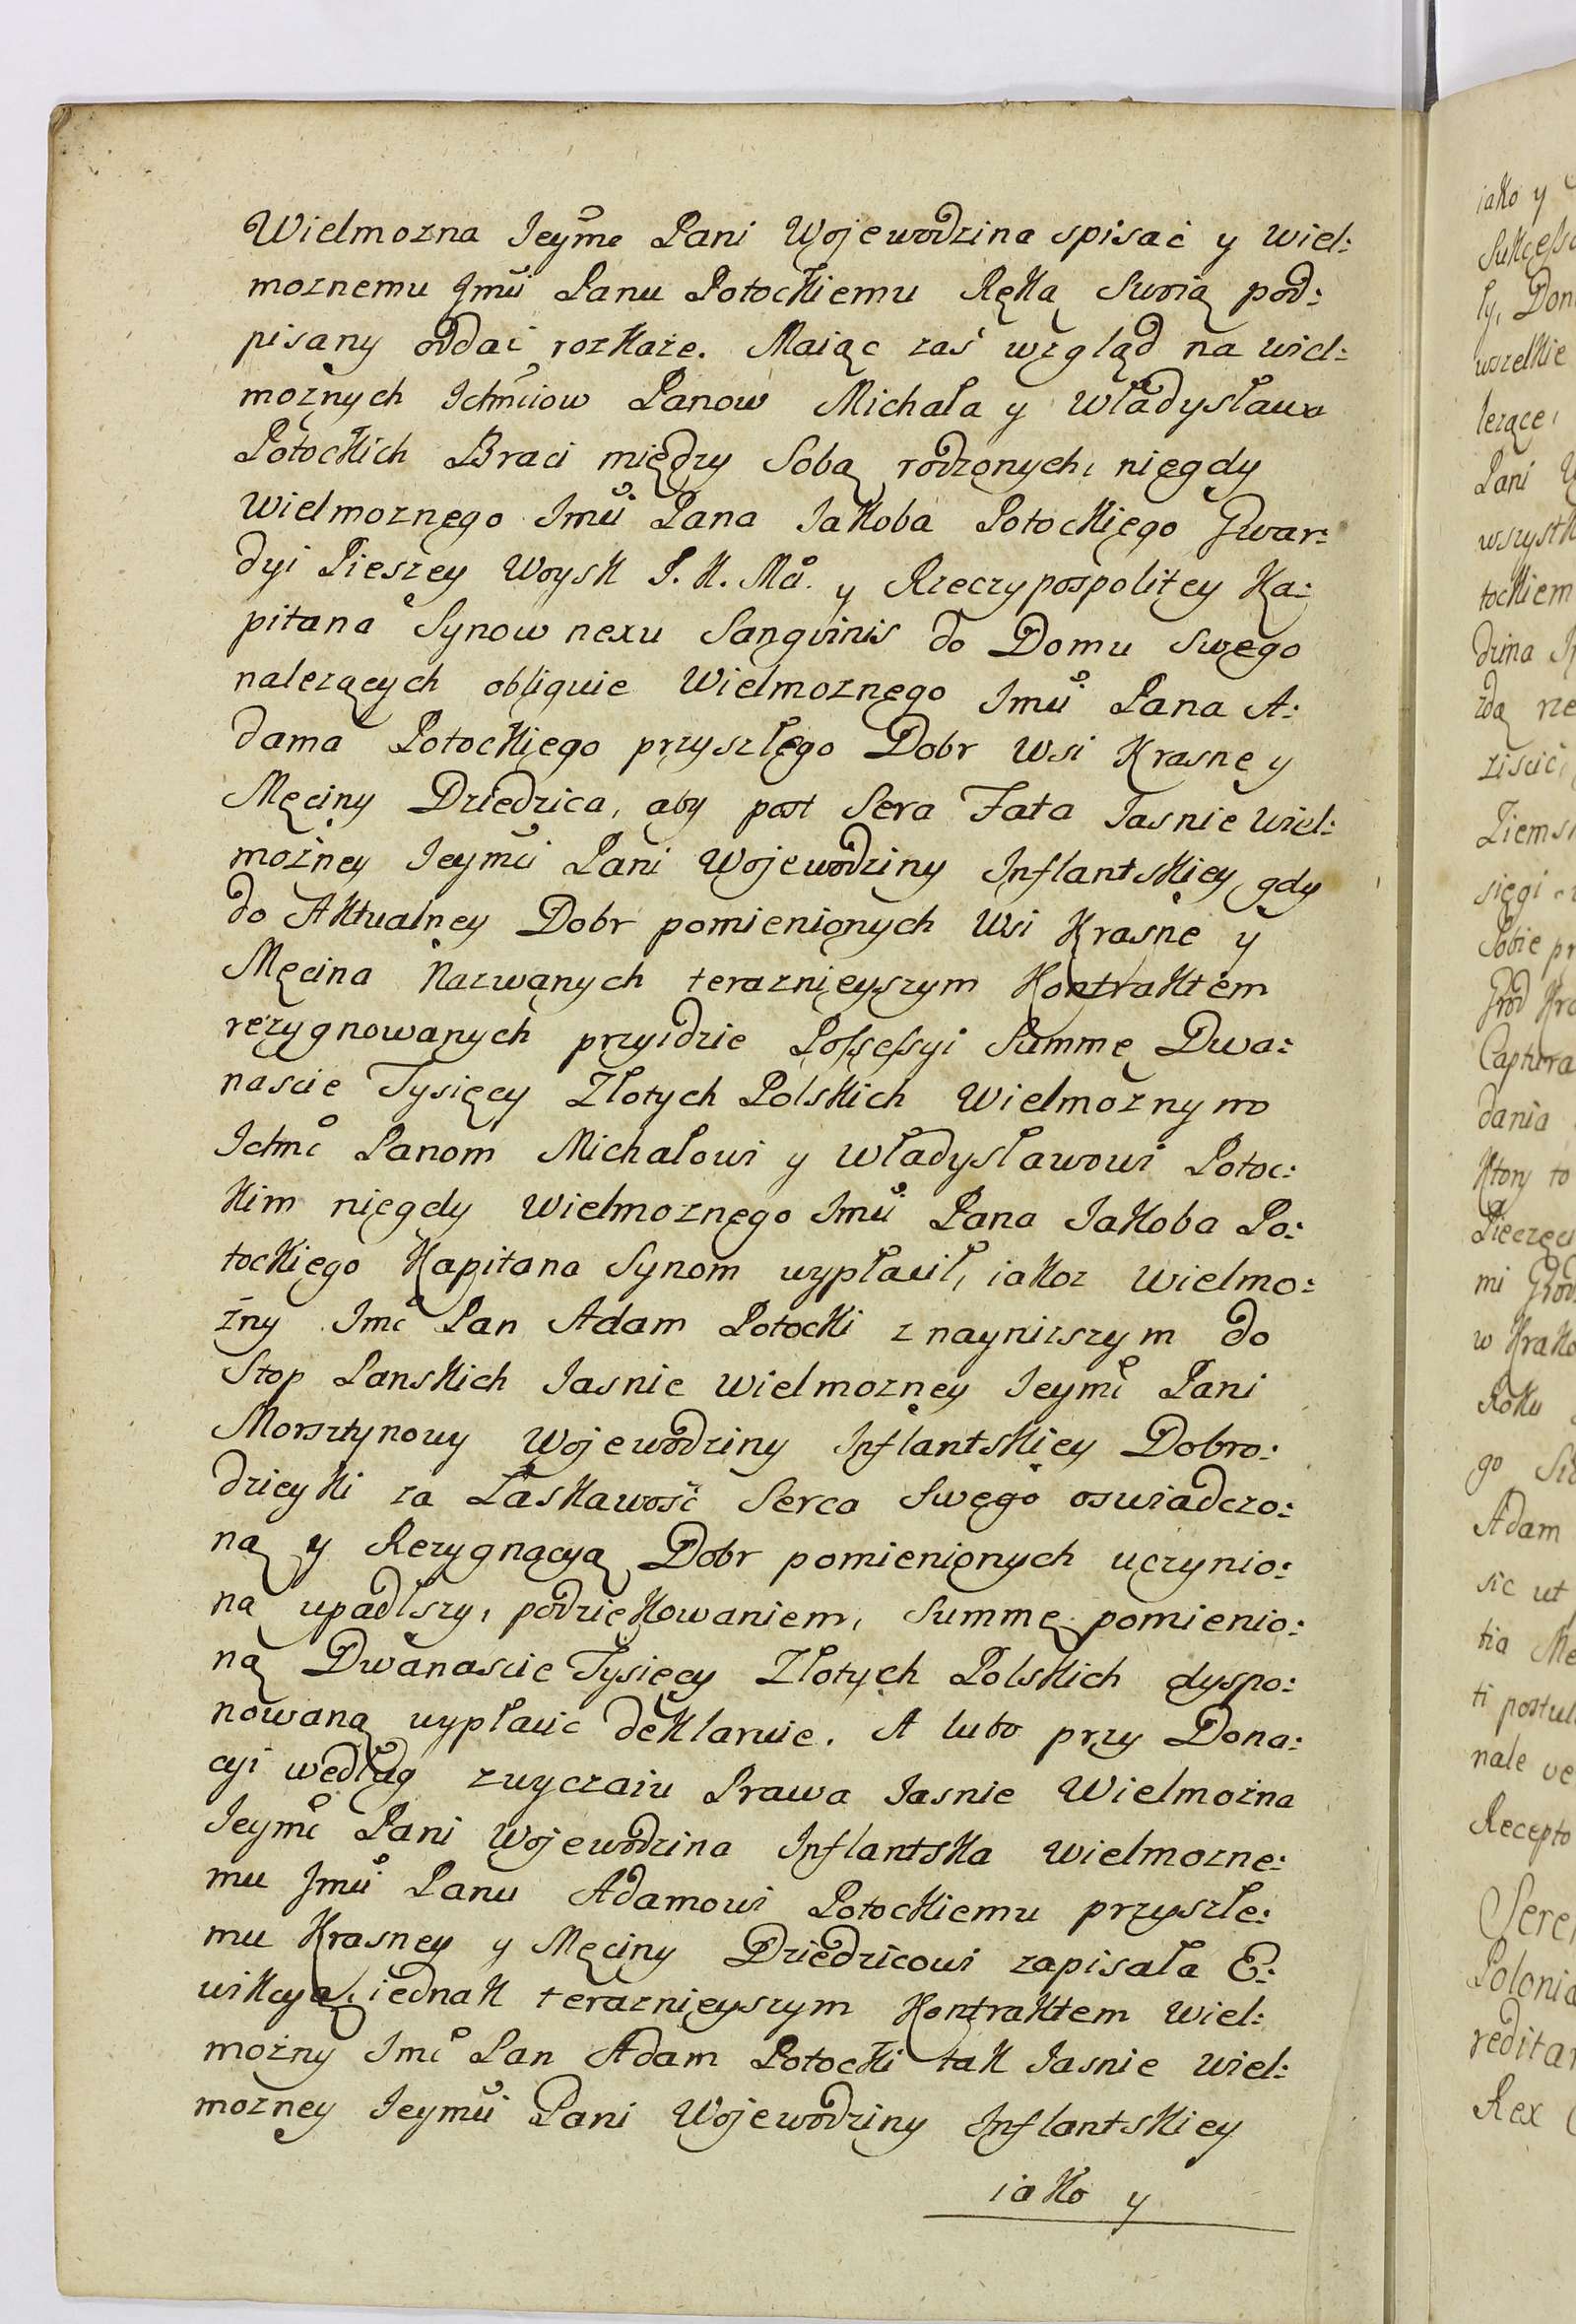 Wielmozna Jeymć Pani Wojewodzina spisać y Wiel:
moznemu Jmci Panu Potockiemu Ręką Swoią pod:
pisany oddać rozkaże. Maiąc zaś wzgląd na wiel:
możnych Ichmciow Panow Michała y Władysława
Potockich Braci między Sobą rodzonych, niegdy
Wielmoznego Jmci Pana Jakoba Potockiego Gwar:
dyi Pieszey Woysk J. K. Mci. y Rzeczypospolitey Ka:
pitana Synow nexu Sangvinis do Domu Swego
nalezących obliguie Wielmoznego Jmci Pana A:
dama Potockiego przyszłego Dobr Wsi Krasne y
Męciny Dziedzica, aby post Sera Fata Jasnie Wiel:
możney Jeymci Pani Wojewodziny Inflantskiey, gdy
do Aktualney Dobr pomienionych Wsi Krasne y
Męcina Nazwanych teraznieyszym Kontraktem
rezygnowanych przyidzie Possessyi Summę Dwa:
nascie Tysięcy Złotych Polskich Wielmożnym
Ichmć Panom Michałowi y Władysławowi Potoc:
kim niegdy Wielmoznego Jmci Pana Jakoba Po:
tockiego Kapitana Synom wypłacił, iakoz Wielmo:
żny Jmć Pan Adam Potocki z naynizszym do
Stop Panskich Jasnie Wielmozney Jeymć Pani
Morsztynowy Wojewodziny Inflantskiey Dobro:
dzieyki za Łaskawość Serca Swego oswiadczo:
ną y Rezygnacyą Dobr pomienionych uczynio:
ną upadłszy, podziękowaniem, Summę pomienio:
ną Dwanascie Tysięcy Złotych Polskich dyspo:
nowaną wypłacic deklaruie. A lubo przy Dona:
cyi według zwyczaiu Prawa Jasnie Wielmożna
Jeymć Pani Wojewodzina Inflantska Wielmozne:
mu Jmci Panu Adamowi Potockiemu przyszłe:
mu Krasney y Męciny Dziedzicowi zapisała E:
wikcyą, iednak teraznieyszym Kontraktem Wiel:
możny Jmć Pan Adam Potocki tak Jasnie Wiel:
mozney Jeymci Pani Wojewodziny Inflantskiey
iako y
iako y
Sukcesso
ły, Don
wszelkie
lezące,
Pani W
wszystk
tockiem
dzina
zda
ziscić
Ziems
sięgi
Sobie pr
Grod Kra
Captura
dania
Ktory to
Pieczęci
mi Grod
w Krako
Roku
go
Adam
sic ut
tia Me
ti postul
nale ve
Recepto
Seren
Polonia
reditar
Rex